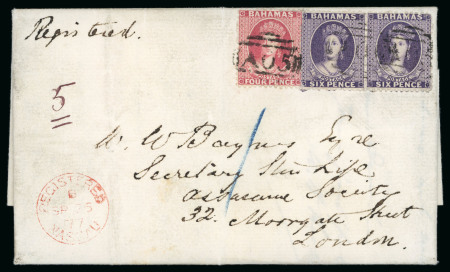 Registered.
BAHAMAS BAHAMAS BAHAMAS
A05
FOUR PENCE SIX PENCE SIX PENCE
5
REGISTERED
6
77
NASSAU
W. W. Baynes Esqre
Secretary Life
Assurance Society
32. Moorgate Street
London.